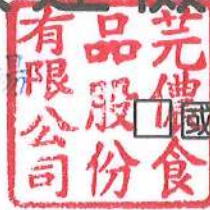 芫儂食
品股份
有限公司
□國